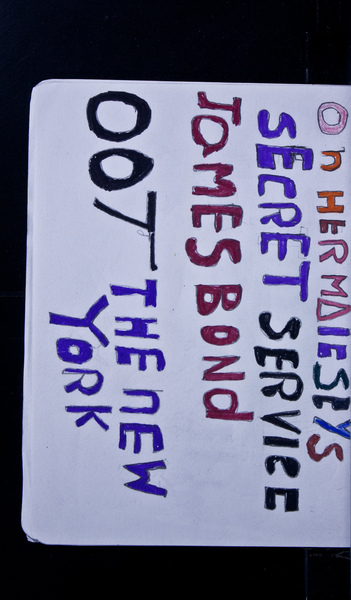 On HERMAIESEYS
SECRET SERVICE
JAMES BOND
007 THE NEW
YORK